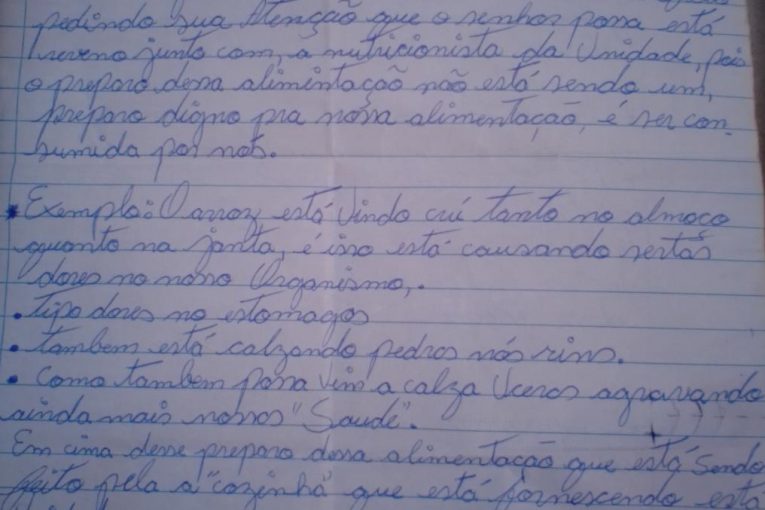 pedindo sua Atenção que o senhor possa está
reveno junto com, a nutricionista da Unidade, pois
o preparo dessa alimintação não está sendo um,
preparo digno pra nossa alimentação, é ser con-
sumida por nós.
* Exemplo: O arroz está vindo crú tanto no almoço
quanto na janta, é isso está causando sertas
dores no nosso Organismo,.
• tipo dores no estomagos
• tambem está calzando pedras nós rins.
• Como tambem possa vim a calza Uceras agravando
ainda mais nossos "Saude".
Em cima desse preparo dessa alimentação que está sendo
feito pela a "cozinha" que está fornescendo está